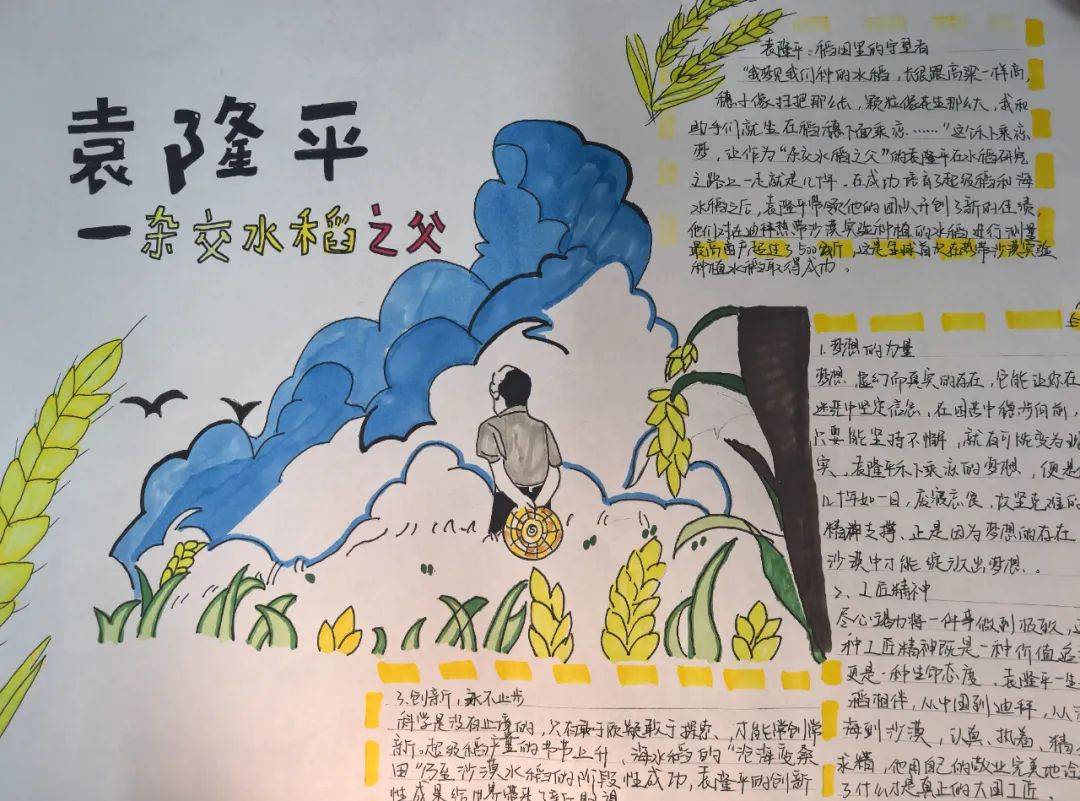 袁隆平
一杂交水稻之父
袁隆平：稻田里的守望者
"我梦见我们种的水稻，长得跟高粱一样高，
穗子像扫把那么长，颗粒像花生那么大，我和
助手们就坐在稻穗下面乘凉……"这个禾下乘凉
梦，让作为"杂交水稻之父"的袁隆平在水稻研究
之路上一走就是几十年。在成功培育了超级稻和海
水稻之后，袁隆平带领他的团队开创了新的佳绩，
他们对在迪拜热带沙漠实验种植的水稻进行测量
最高亩产超过了500公斤，这是全球首次在热带沙漠实验
种植水稻取得成功。
1.梦想的力量
梦想，虚幻而真实的存在，它能让你在
迷茫中坚定信念，在困苦中稳步向前，
只要能坚持不懈，就有可能变为
实。袁隆平禾下乘凉的梦想，便是
几十年如一日，废寝忘食，攻坚克难的
精神支撑、正是因为梦想的存在
沙漠中才能绽放出梦想。
2、工匠精神
尽心竭力将一件事做到极致，
种工匠精神既是一种价值追
更是一种生命态度。袁隆平一生
稻相伴，从中国到迪拜，从
海到沙漠，认真、执着、精
求精，他用自己的敬业完美地诠
了什么才是真正的大国工匠。
3.创新，永不止步
科学是没有止境的，只有敢于质疑敢于探索，才能常创常
新。超级稻产量的节节上升，海水稻的"沧海变桑
田"乃至沙漠水稻的阶段性成功，袁隆平的创新
性成果给世界带来了